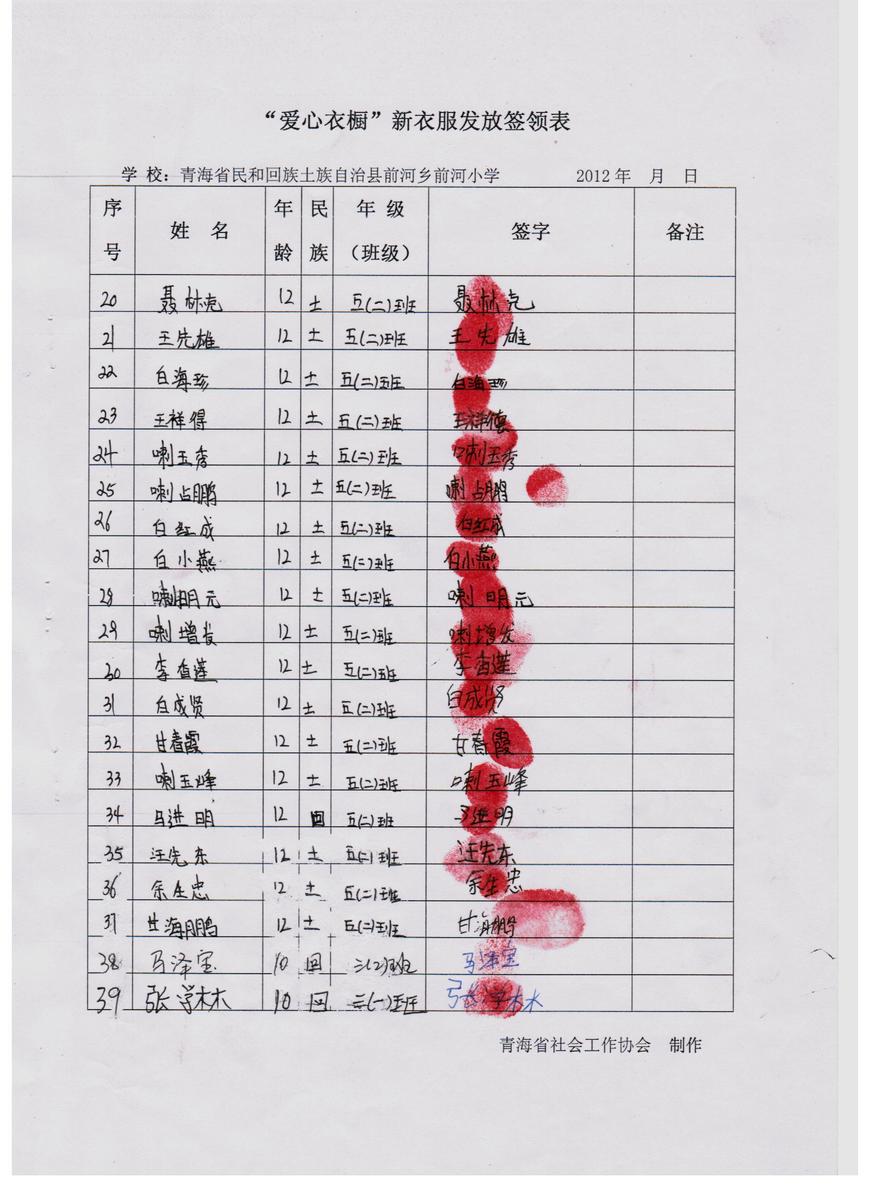 “爱心衣橱”新衣服发放签领表
学 校：青海省民和回族土族自治县前河乡前河小学 2012年 月 日
序号 姓 名 年龄 民族 年 级（班级） 签字 备注
20 聂林克 12 土 五(二)班 聂林克
21 王先雄 12 土 五(二)班 王先雄
22 白海珍 12 土 五(二)班 白海珍
23 王祥得 12 土 五(二)班 王祥德
24 喇玉秀 12 土 五(二)班 喇玉秀
25 喇占鹏 12 土 五(二)班 喇占鹏
26 白红成 12 土 五(二)班 白红成
27 白小燕 12 土 五(二)班 白小燕
28 喇明元 12 土 五(二)班 喇明元
29 喇增发 12 土 五(二)班 喇增发
30 李香莲 12 土 五(二)班 李香莲
31 白成贤 12 土 五(二)班 白成贤
32 甘春霞 12 土 五(二)班 甘春霞
33 喇玉峰 12 土 五(二)班 喇玉峰
34 马进明 12 回 五(二)班 马进明
35 汪先东 12 土 五(二)班 汪先东
36 余生忠 12 土 五(二)班 余生忠
37 甘海鹏 12 土 五(二)班 甘海鹏
38 马泽宝 10 回 三(2)班 马泽宝
39 张学林 10 回 三(一)班 张学林
青海省社会工作协会 制作